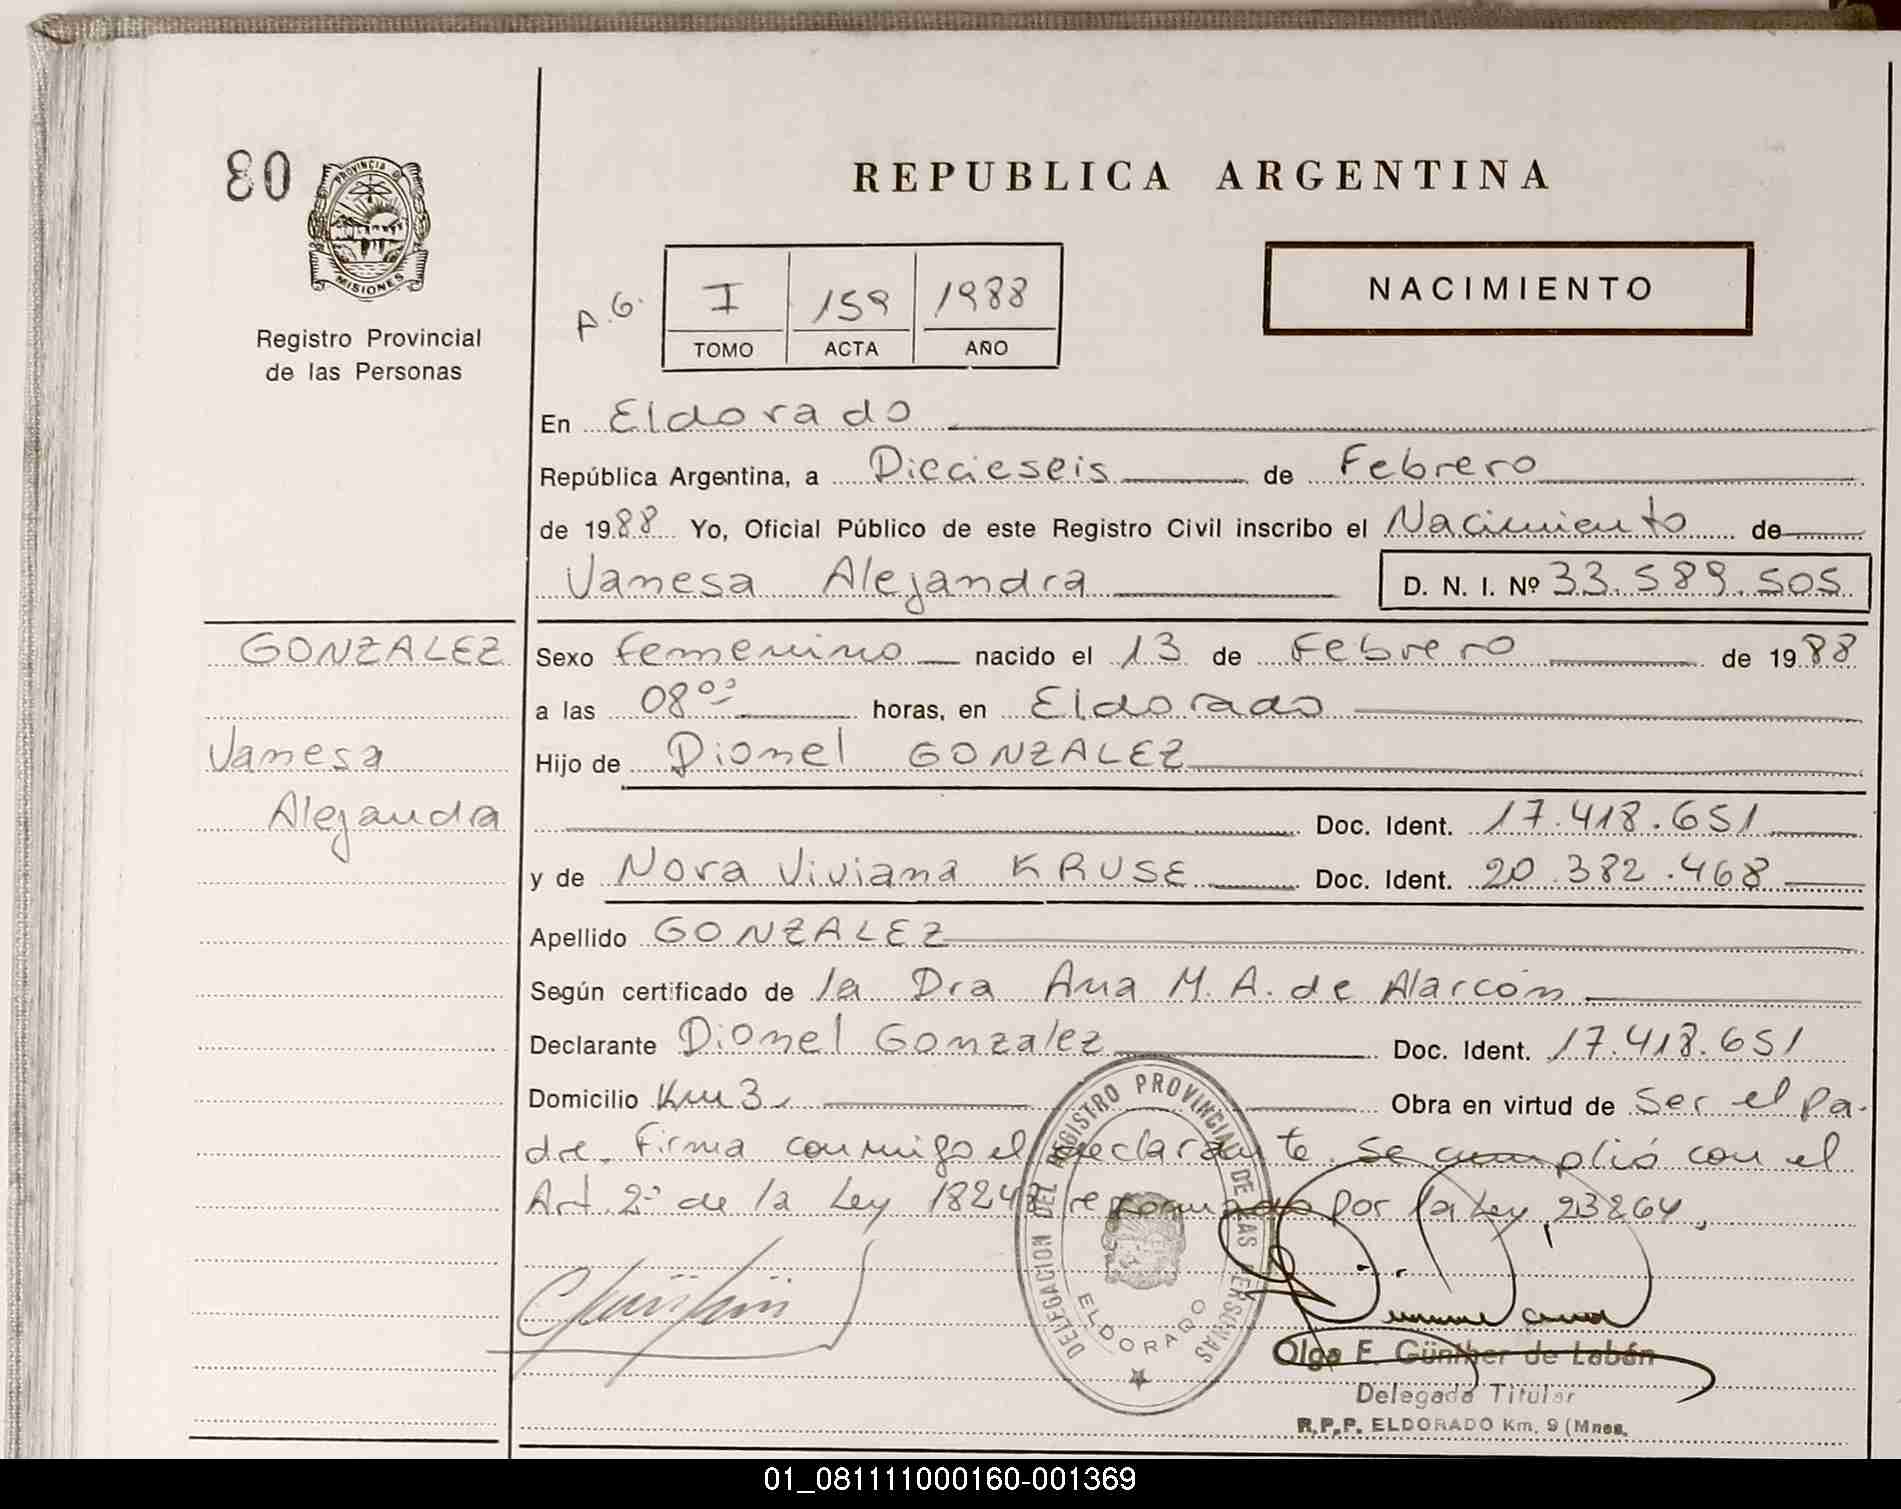 80
PROVINCIA DE
MISIONES
Registro Provincial
de las Personas
REPUBLICA ARGENTINA
NACIMIENTO
A.G.
I 159 1988
TOMO ACTA AÑO
En Eldorado
República Argentina, a Diecieseis de Febrero
de 1988 Yo, Oficial Público de este Registro Civil inscribo el Nacimiento de
Vanesa Alejandra D. N. I. Nº 33.589.505
GONZALEZ
Vanesa
Alejandra
Sexo femenino nacido el 13 de Febrero de 1988
a las 08°° horas, en Eldorado
Hijo de Dionel GONZALEZ
Doc. Ident. 17.418.651
y de Nora Viviana KRUSE Doc. Ident. 20.382.468
Apellido GONZALEZ
Según certificado de la Dra Ana M. A. de Alarcón
Declarante Dionel Gonzalez Doc. Ident. 17.418.651
Domicilio Km 3. Obra en virtud de Ser el pa-
dre. Firma conmigo el declarante. Se cumplió con el
Art. 2° de la Ley 18248 reformado por la Ley 23264.
DELEGACION DEL REGISTRO PROVINCIAL DE LAS PERSONAS
ELDORADO
Olga E. Günther de Labán
Delegada Titular
R.P.P. ELDORADO Km. 9 (Mnes.
01_081111000160-001369